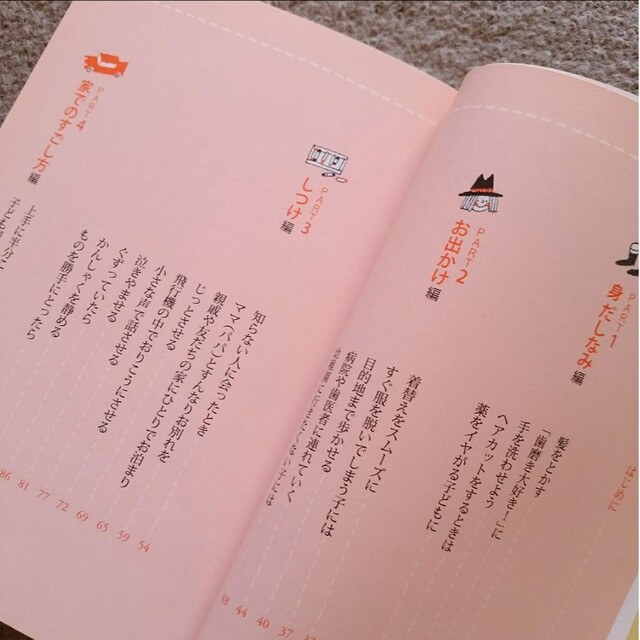 はじめに
PART1
身だしなみ編
髪をとかす
「歯磨き大好き！」に
手を洗わせよう
ヘアカットをするときは
薬をイヤがる子どもに
PART2
お出かけ編
着替えをスムーズに
すぐ服を脱いでしまう子には
目的地まで歩かせる
病院や歯医者に連れていく
37
40
44
48
PART3
しつけ編
知らない人に会ったとき
ママ（パパ）とすんなりお別れを
親戚や友だちの家にひとりでお泊まり
じっとさせる
飛行機の中でおりこうにさせる
小さな声で話させる
泣きやませる
ぐずっていたら
かんしゃくを静める
ものを勝手にとったら
54
59
65
69
72
77
81
86
PART4
家でのすごし方編
上手に半分こ